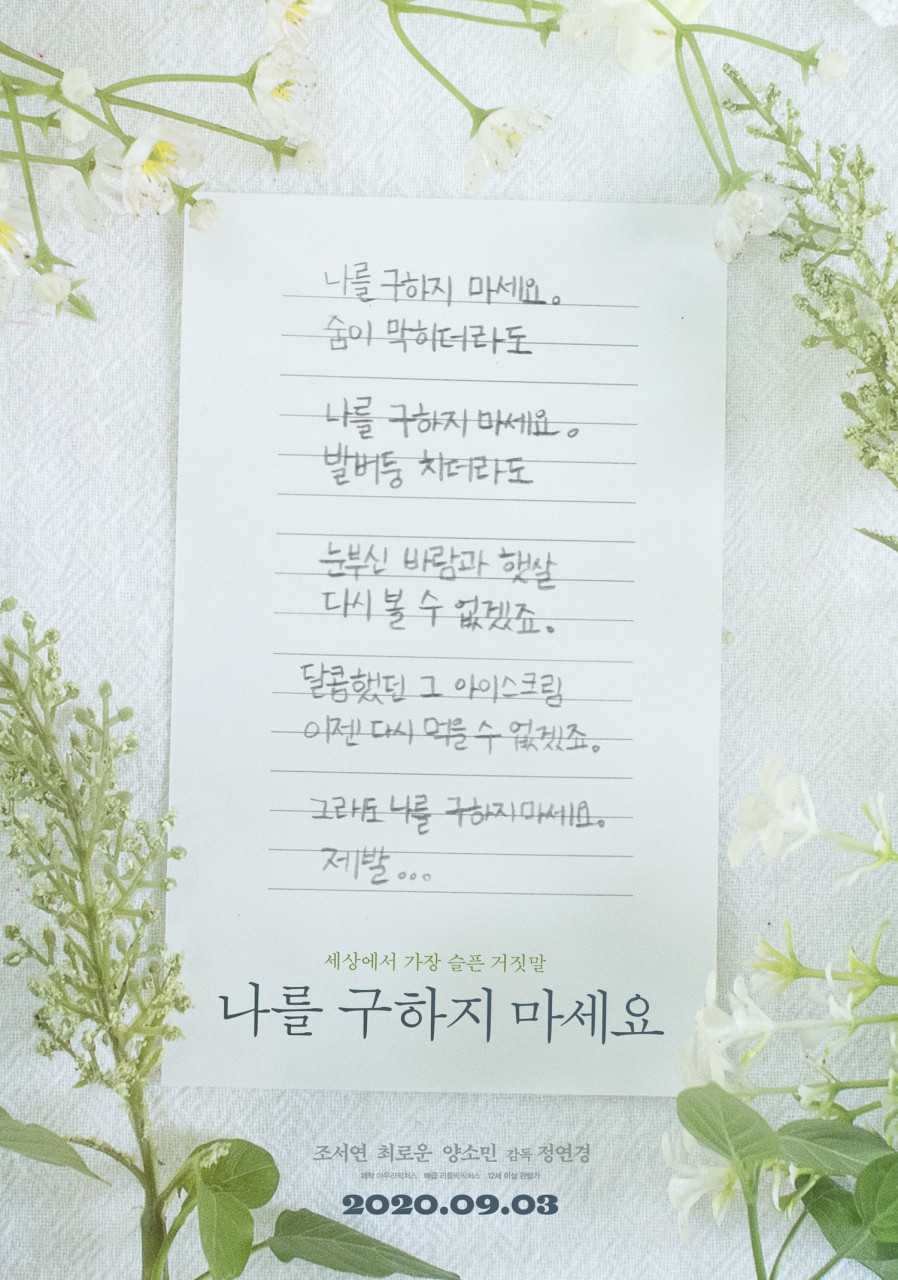 나를 구하지 마세요.
숨이 막히더라도
나를 구하지 마세요.
발버둥 치더라도
눈부신 바람과 햇살
다시 볼 수 없겠죠.
달콤했던 그 아이스크림
이젠 다시 먹을 수 없겠죠.
그래도 나를 구하지 마세요.
제발...
세상에서 가장 슬픈 거짓말
나를 구하지 마세요
조서연 최로운 양소민 감독 정연경
제작 배급 12세 이상 관람가
2020.09.03